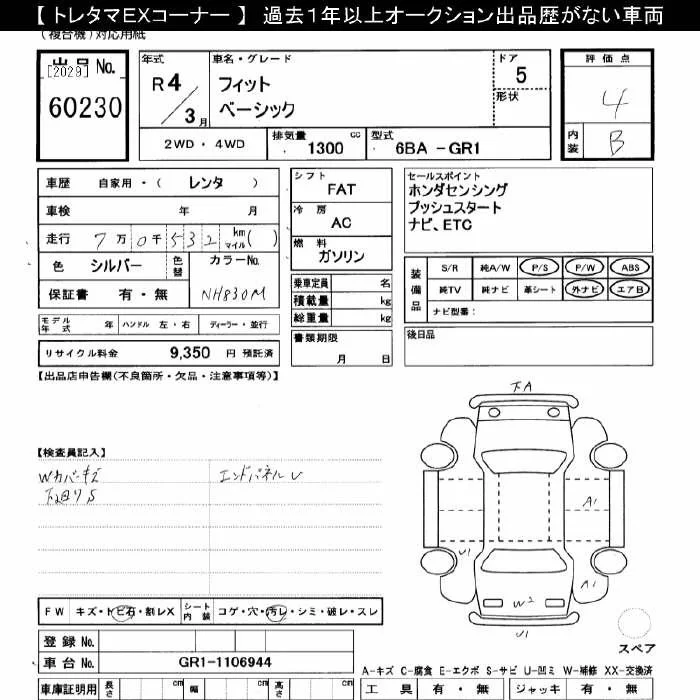 【 トレタマEXコーナー 】 過去1年以上オークション出品歴がない車両
(複合機)対応用紙
出品 No.
[2029]
60230
年式
R4/3月
車名・グレード
フィット
ベーシック
ドア
5
形状
評価点
4
内装
B
2WD・4WD
排気量 cc
1300
型式
6BA -GR1
車歴 自家用・( レンタ )
車検 年 月
走行 7万0千532 km マイル( )
色 シルバー 色替 カラーNo.
保証書 有・無 NH830M
モデル年式 年 ハンドル 左・右 ディーラー・並行
リサイクル料金 9,350 円 預託済
シフト
FAT
冷房
AC
燃料
ガソリン
乗車定員 名
積載量 kg
総重量 kg
書類期限
月 日
セールスポイント
ホンダセンシング
プッシュスタート
ナビ、ETC
装備品
S/R 純A/W P/S P/W ABS
純TV 純ナビ 革シート 外ナビ エアB
ナビ型番:
後日品
【出品店申告欄(不良箇所・欠品・注意事項等)】
【検査員記入】
Wカバーキズ
下回りS
エンドパネルU
下A
A1
U1
A1
W2
U1
スペア
FW キズ・トビ石・割レX シート内装 コゲ・穴・汚レ・シミ・破レ・スレ
登録 No.
車台 No. GR1-1106944
車庫証明用 長さ cm 幅 cm 高さ cm
A-キズ C-腐食 E-エクボ S-サビ U-凹ミ W-補修 XX-交換済
工具 有・無 ジャッキ 有・無